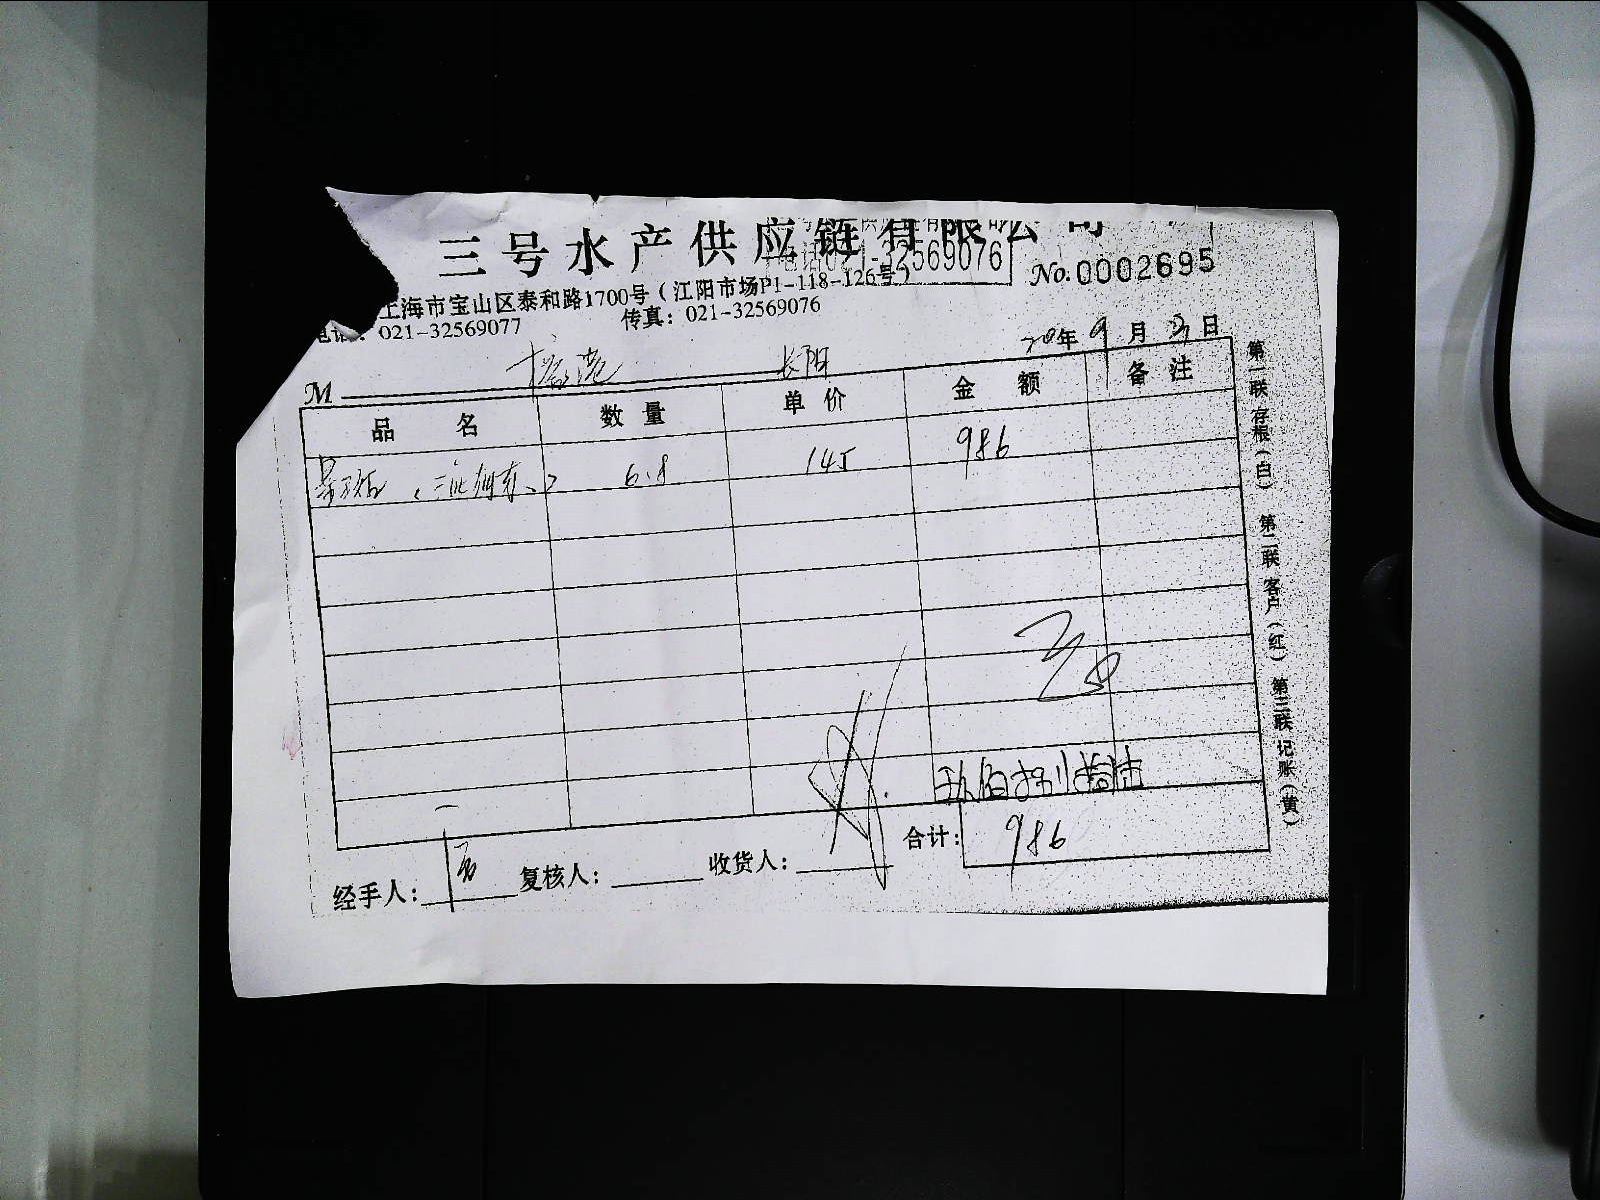 三号水产供应链有限公司
32569076
No.0002695
上海市宝山区泰和路1700号(江阳市场P1-118-126号)
电话:021-32569077 传真:021-32569076
年 9 月 日
M 长阳
品名 数量 单价 金额 备注
6.8 145 986
玖佰捌拾陆
合计: 986
经手人: 复核人: 收货人:
第一联 存根(白) 第二联 客户(红) 第三联 记账(黄)